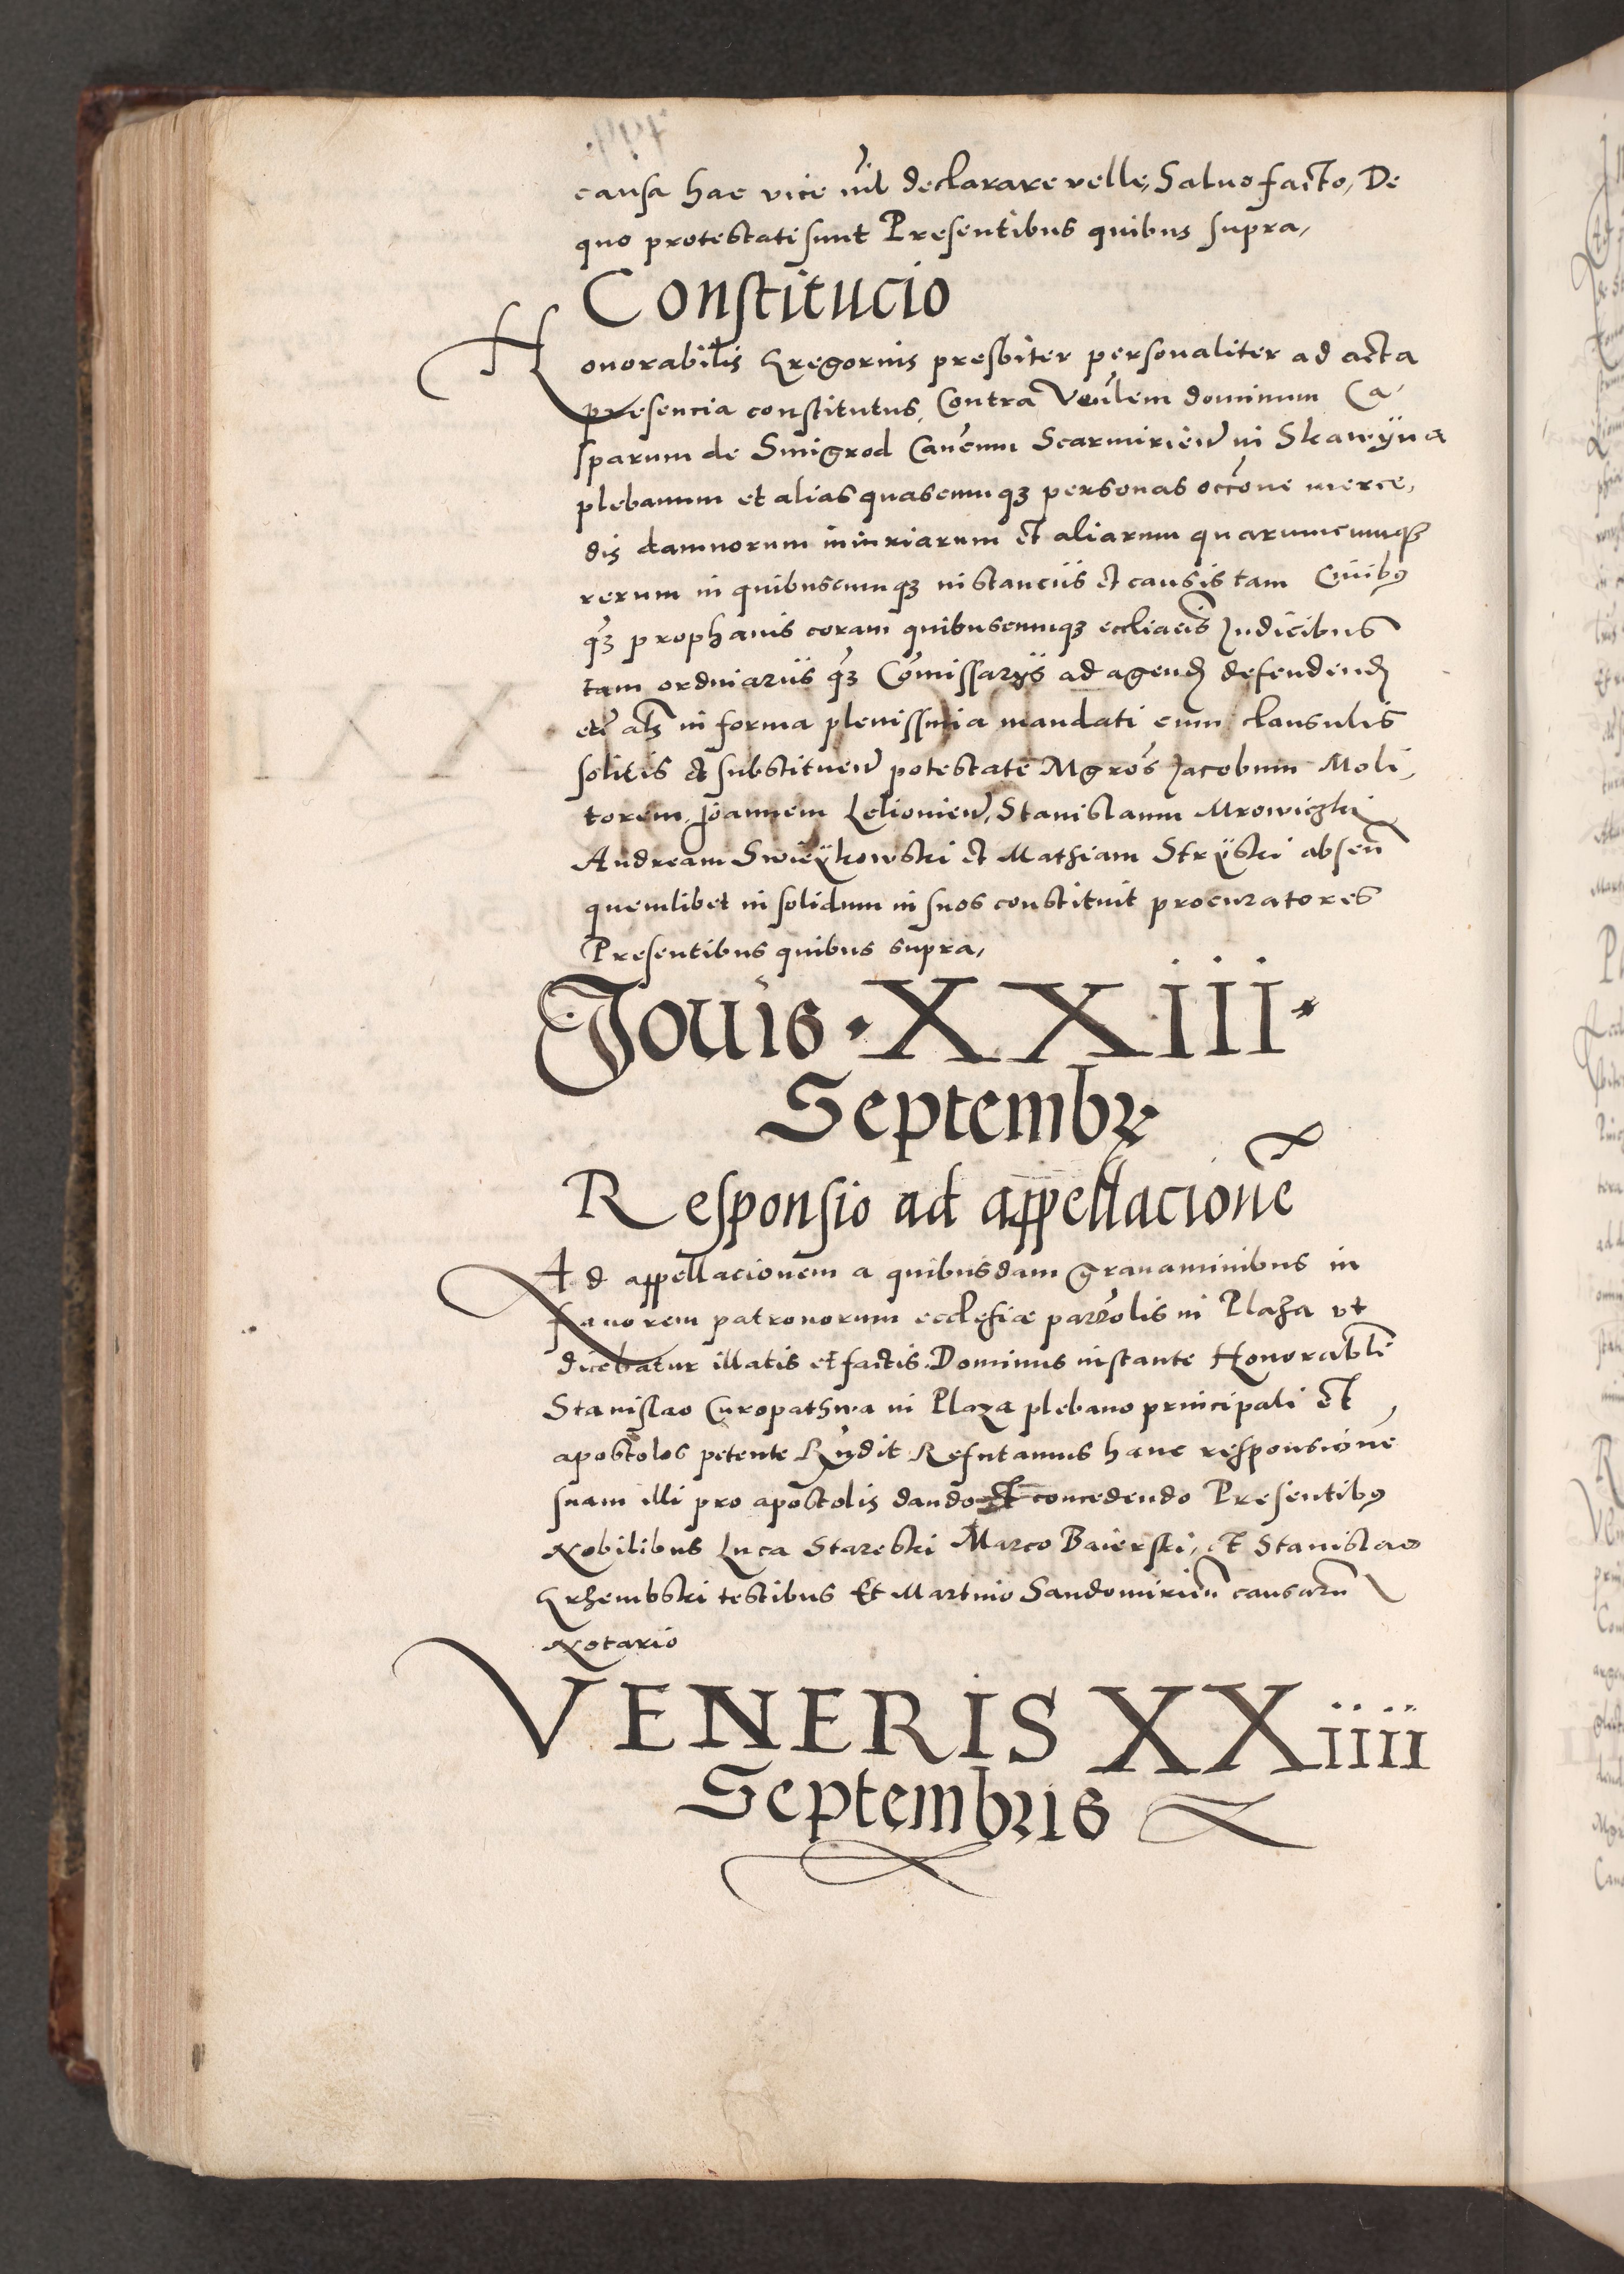 causa hac vice nil declarare velle, Saluo facto, De
quo protestati sunt Presentibus quibus supra,
Constitucio
Honorabilis Gregorius presbiter personaliter ad acta
presencia constitutus, Contra Veñlem dominum Ca-
sparum de Smigrod Canen̄ Scarmirien̄ in Skawyna
plebanum et alias quascumqȝ personas occōne merce,
dis damnorum iniuriarum et aliarum quarumcumqȝ
rerum in quibuscumqȝ instanciis et causis tam Ciuibꝰ
qȝ prophanis coram quibuscumqȝ eccliacis Iudicibus
tam ordinariis qȝ Cōmissarijs ad agend defendend
etc̄ als in forma plenissima mandati cum clausulis
solitis et substituen̄ potestate Mgrōs Jacobum Moli,
torem, Joannem Lelionien̄, Stanislaum Mrowiczki
Andream Swieÿkowski et Mathiam Strÿski absen̄
quemlibet in solidum in suos constituit procuratores
Presentibus quibus supra,
Jouis · XXIII ·
Septembr
Responsio ad appellacionē
Ad appellacionem a quibusdam grauaminibus in
fauorem patronorum ecclesiæ parrōlis in Plaza vt
dicebatur illatis et factis Dominus instante Honorabli
Stanislao Curopathwa in Plaza plebano principali et
apostolos petente Rn̄dit Refutamus hanc responsionē
suam illi pro apostolis dando et concedendo Presentibꝰ
Nobilibus Luca Starebski Marco Baierski, et Stanislao
Grhembski testibus Et Martino Sandomirien̄ causarū
Notario
VENERIS XXiiii
Septembris